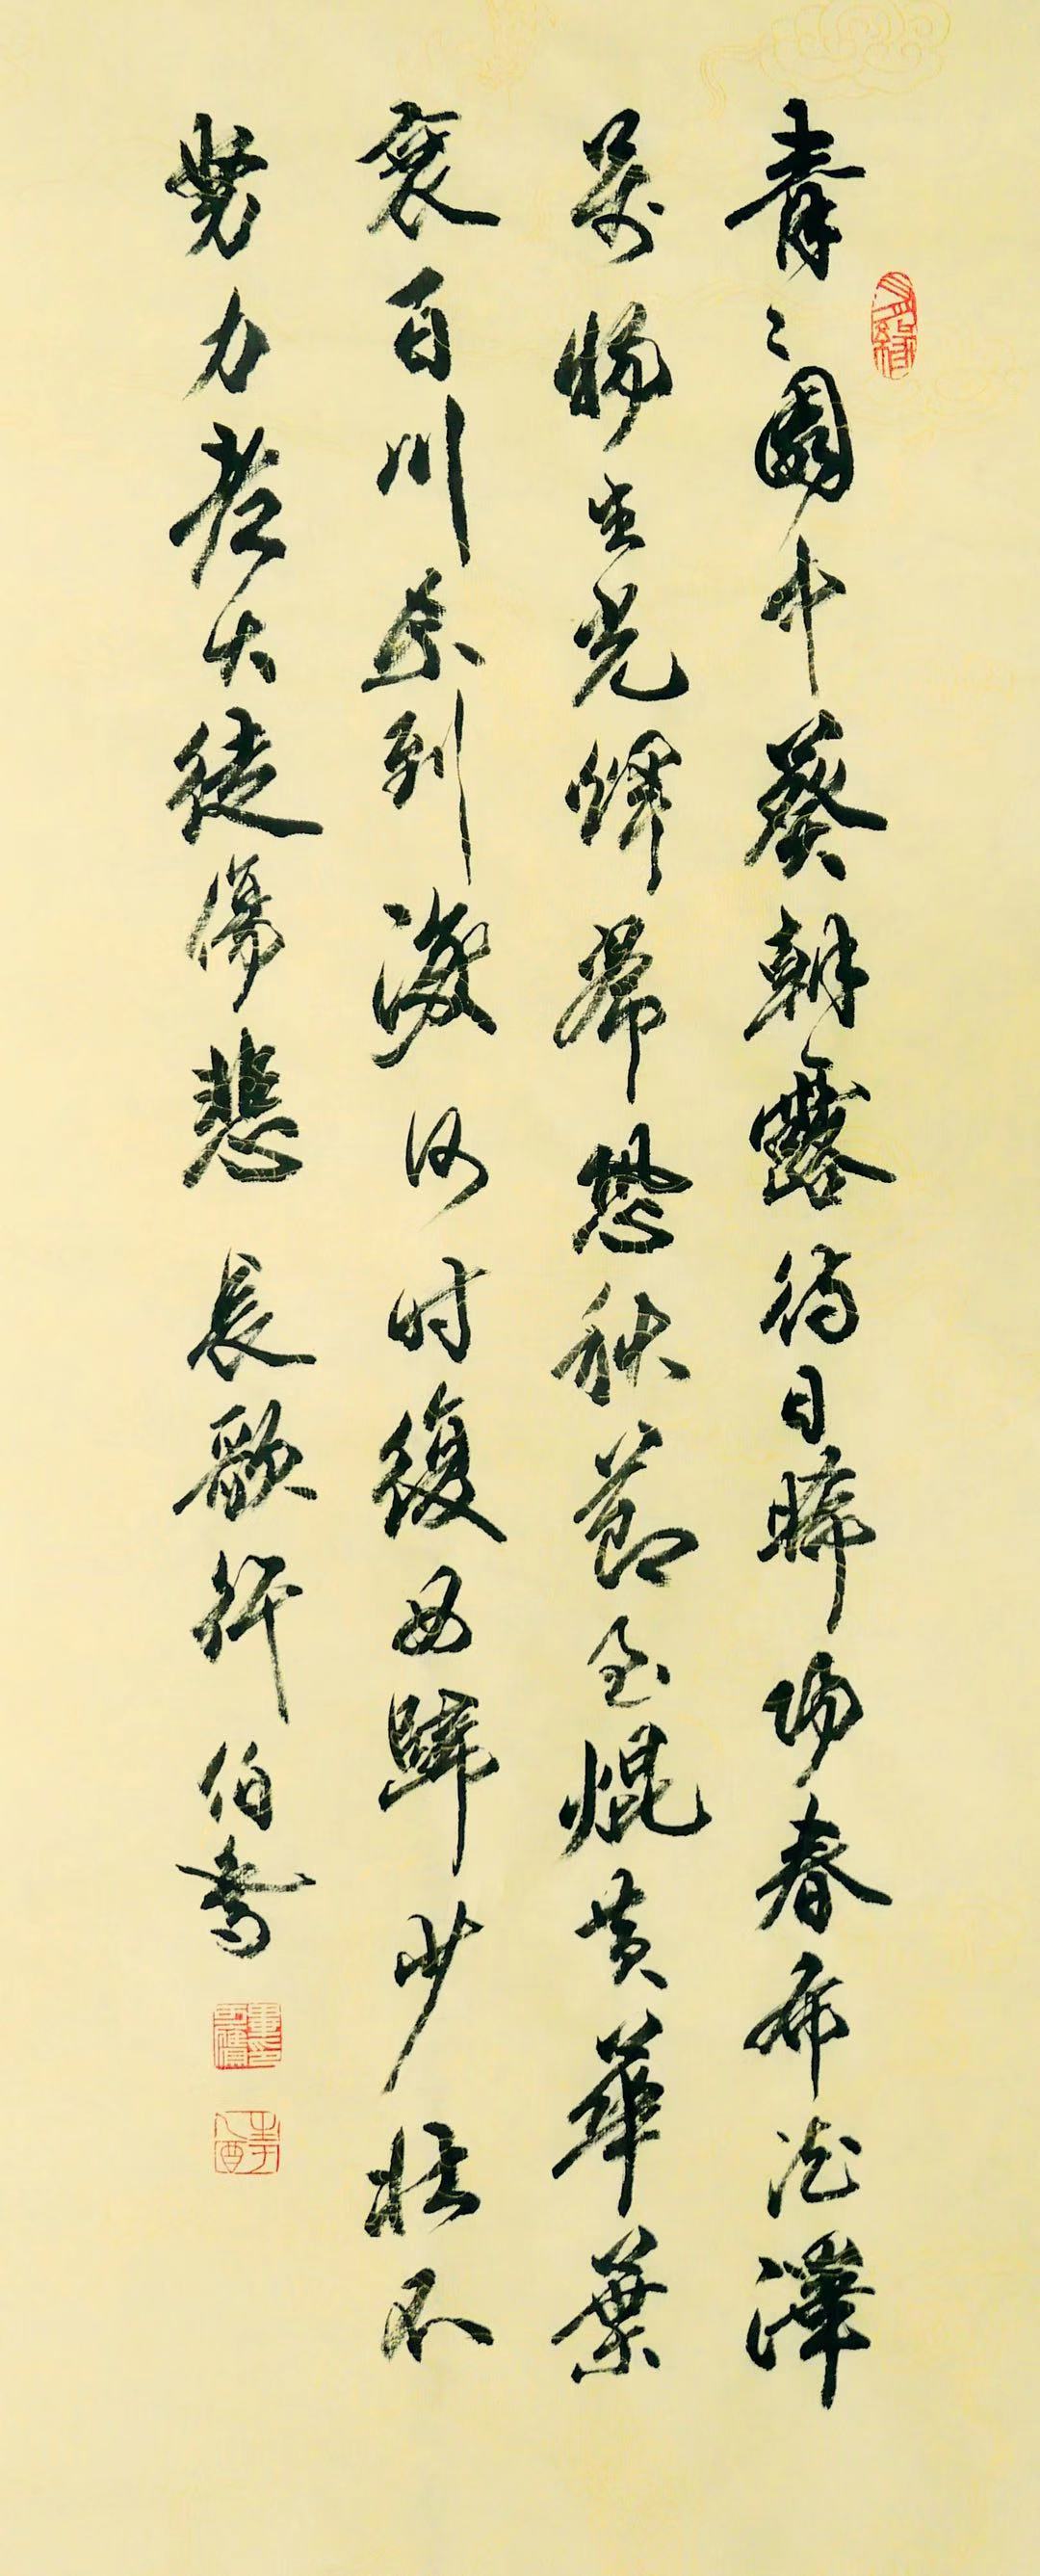 青々園中葵朝露待日晞陽春布德澤
萬物生光輝常恐秋節至焜黃華葉
衰百川東到海何時復西歸少壯不
努力老大徒傷悲 長歌行 伯